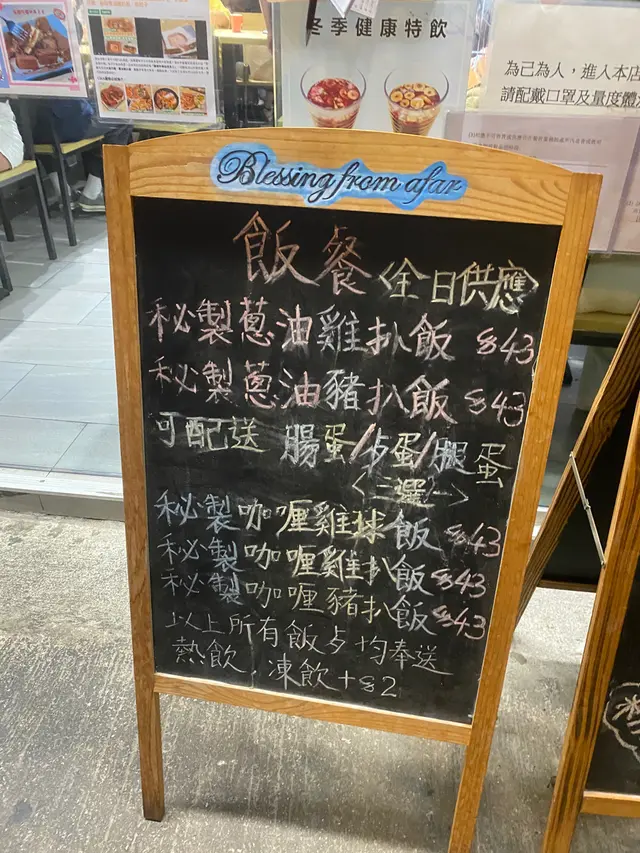 冬季健康特飲
為己為人，進入本店
請配戴口罩及量度體
Blessing from afar
飯餐<全日供應>
秘製蔥油雞扒飯 $43
秘製蔥油豬扒飯 $43
可配送 腸蛋/歺蛋/腿蛋
<三選一>
秘製咖喱雞球飯 $43
秘製咖喱雞扒飯 $43
秘製咖喱豬扒飯 $43
以上所有飯歺均奉送
熱飲, 凍飲+$2